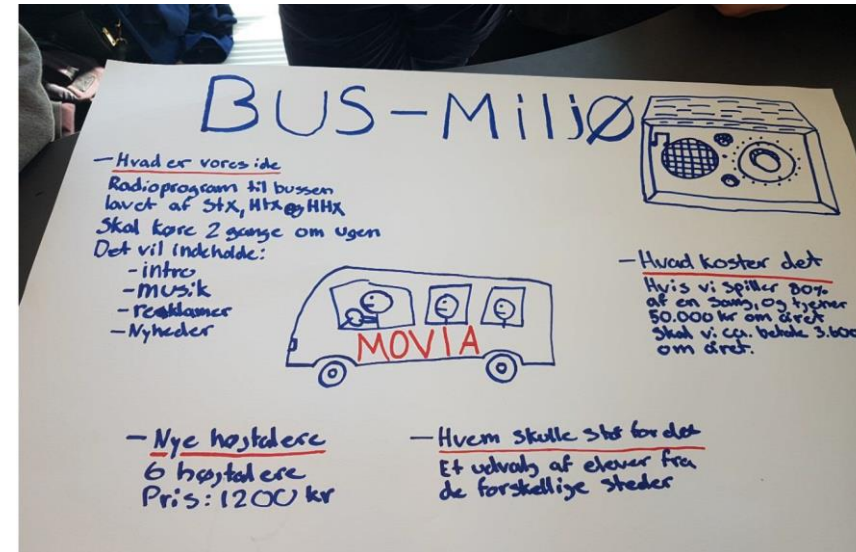 BUS-Miljø
- Hvad er vores ide
Radioprogram til bussen
lavet af Stx, Htx og HHx
Skal køre 2 gange om ugen
Det vil indeholde:
- intro
- musik
- reklamer
- Nyheder
MOVIA
- Hvad koster det
Hvis vi spiller 80%
af en sang, og tjener
50.000 kr om året
skal vi ca. betale 3.600
om året.
- Nye højtalere
6 højtalere
Pris: 1200 kr
- Hvem skulle stå for det
Et udvalg af elever fra
de forskellige steder